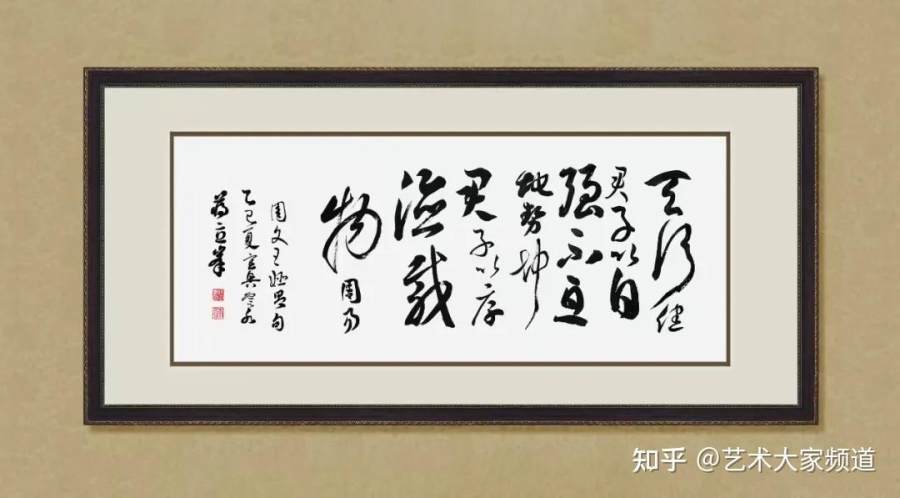 天行健
君子以自
强不息
地势坤
君子以厚
德载
物 周易
周文王姬昌句
乙巳夏宜兴
知乎 @艺术大家频道